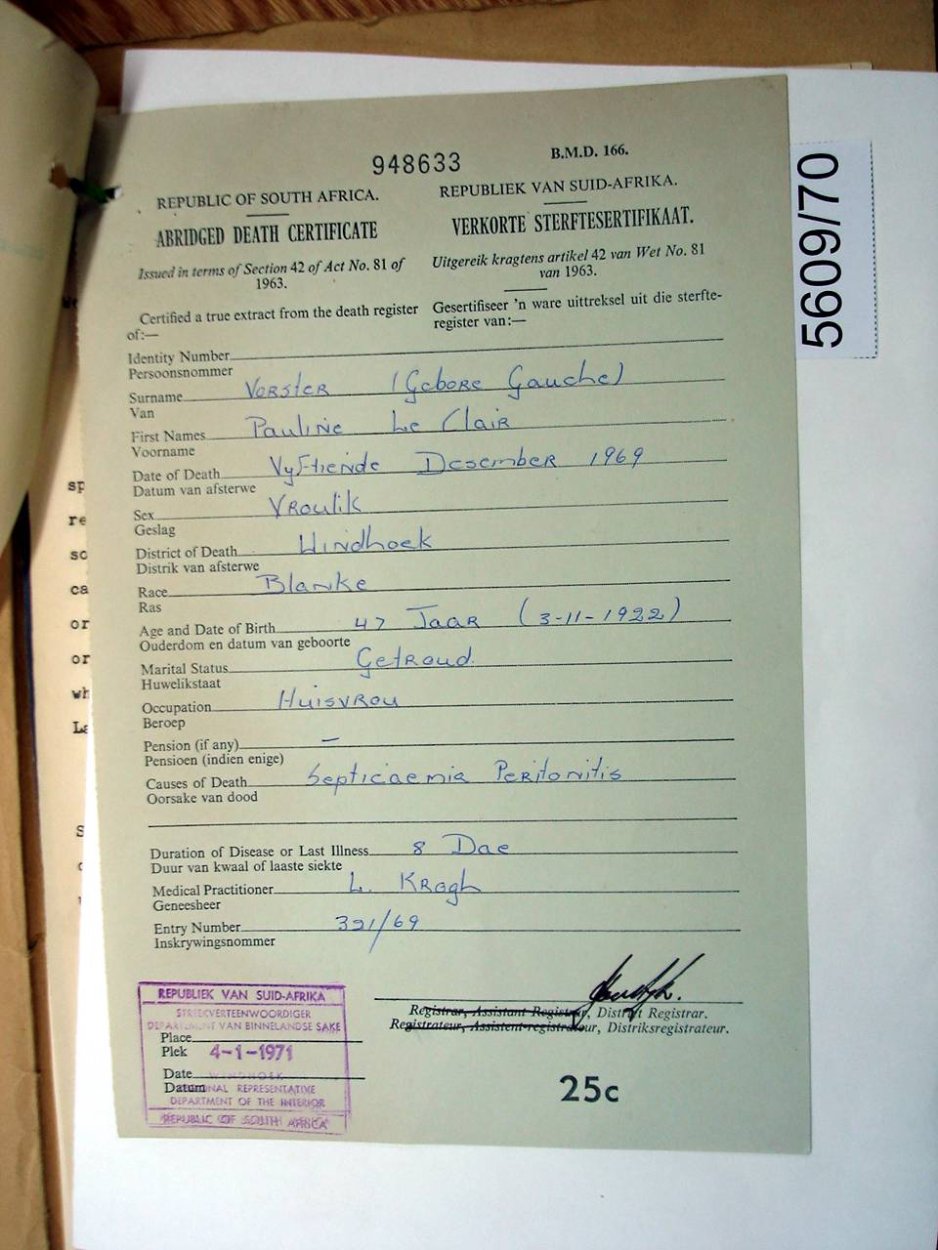 948633
B.M.D. 166.
REPUBLIC OF SOUTH AFRICA.
ABRIDGED DEATH CERTIFICATE
Issued in terms of Section 42 of Act No. 81 of
1963.
Certified a true extract from the death register
of:—
REPUBLIEK VAN SUID-AFRIKA.
VERKORTE STERFTESERTIFIKAAT.
Uitgereik kragtens artikel 42 van Wet No. 81
van 1963.
Gesertifiseer 'n ware uittreksel uit die sterfte-
register van:—
Identity Number
Persoonsnommer
Surname Vorster (Gebore Gauche)
Van
First Names Pauline Le Clair
Voorname
Date of Death Vyftiende Desember 1969
Datum van afsterwe
Sex Vroulik
Geslag
District of Death Windhoek
Distrik van afsterwe
Race Blanke
Ras
Age and Date of Birth 47 Jaar (3-11-1922)
Ouderdom en datum van geboorte
Marital Status Getroud
Huwelikstaat
Occupation Huisvrou
Beroep
Pension (if any) –
Pensioen (indien enige)
Causes of Death Septicaemia Peritonitis
Oorsake van dood
Duration of Disease or Last Illness 8 Dae
Duur van kwaal of laaste siekte
Medical Practitioner L. Krogh
Geneesheer
Entry Number 321/69
Inskrywingsnommer
Registrar, Assistant Registrar, District Registrar.
Registrateur, Assistent-registrateur, Distriksregistrateur.
REPUBLIEK VAN SUID-AFRIKA
STREEKVERTEENWOORDIGER
DEPARTEMENT VAN BINNELANDSE SAKE
Place
Plek 4-1-1971
Date WINDHOEK
Datum REGIONAL REPRESENTATIVE
DEPARTMENT OF THE INTERIOR
REPUBLIC OF SOUTH AFRICA
25c
5609/70
sp
re
so
ca
or
or
wh
La